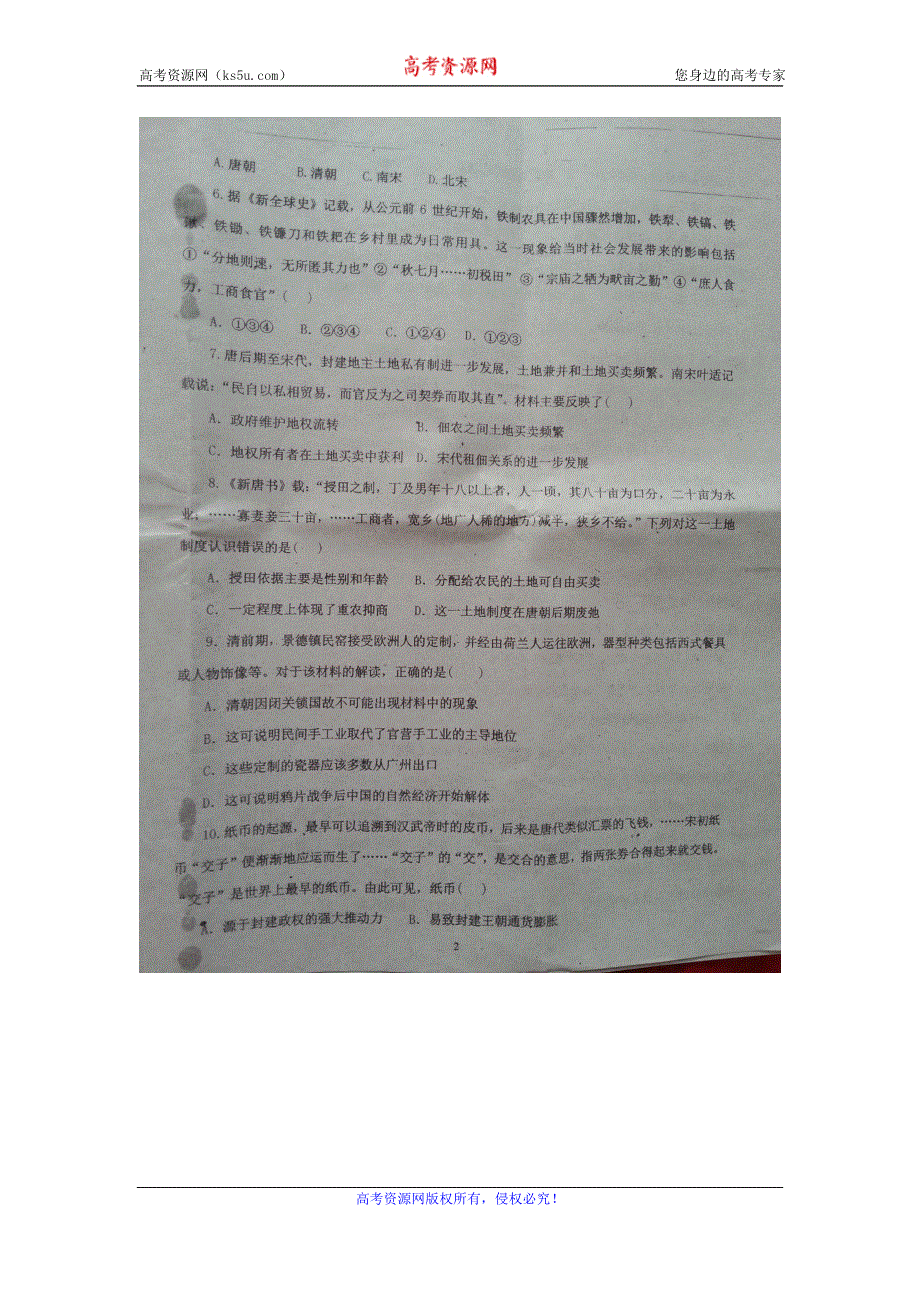 高考资源网（ks5u.com）
高考资源网
您身边的高考专家
A.唐朝 B.清朝 C.南宋 D.北宋
6.据《新全球史》记载，从公元前6世纪开始，铁制农具在中国骤然增加，铁犁、铁镐、铁
锹、铁锄、铁镰刀和铁耙在乡村里成为日常用具。这一现象给当时社会发展带来的影响包括
①“分地则速，无所匿其力也”②“秋七月……初税田” ③“宗庙之牺为畎亩之勤”④“庶人食
力，工商食官”( )
A．①③④ B．②③④ C．①②④ D．①②③
7．唐后期至宋代，封建地主土地私有制进一步发展，土地兼并和土地买卖频繁。南宋叶适记
载说：“民自以私相贸易，而官反为之司契券而取其直”。材料主要反映了( )
A．政府维护地权流转 B．佃农之间土地买卖频繁
C．地权所有者在土地买卖中获利 D．宋代租佃关系的进一步发展
8．《新唐书》载：“授田之制，丁及男年十八以上者，人一顷，其八十亩为口分，二十亩为永
业；……寡妻妾三十亩，……工商者，宽乡(地广人稀的地方)减半，狭乡不给。”下列对这一土地
制度认识错误的是( )
A．授田依据主要是性别和年龄 B．分配给农民的土地可自由买卖
C．一定程度上体现了重农抑商 D．这一土地制度在唐朝后期废弛
9．清前期，景德镇民窑接受欧洲人的定制，并经由荷兰人运往欧洲，器型种类包括西式餐具
或人物饰像等。对于该材料的解读，正确的是( )
A．清朝因闭关锁国故不可能出现材料中的现象
B．这可说明民间手工业取代了官营手工业的主导地位
C．这些定制的瓷器应该多数从广州出口
D．这可说明鸦片战争后中国的自然经济开始解体
10.纸币的起源，最早可以追溯到汉武帝时的皮币，后来是唐代类似汇票的飞钱，……宋初纸
币“交子”便渐渐地应运而生了……“交子”的“交”，是交合的意思，指两张券合得起来就交钱。
“交子”是世界上最早的纸币。由此可见，纸币( )
A．源于封建政权的强大推动力 B．易致封建王朝通货膨胀
2
高考资源网版权所有，侵权必究！